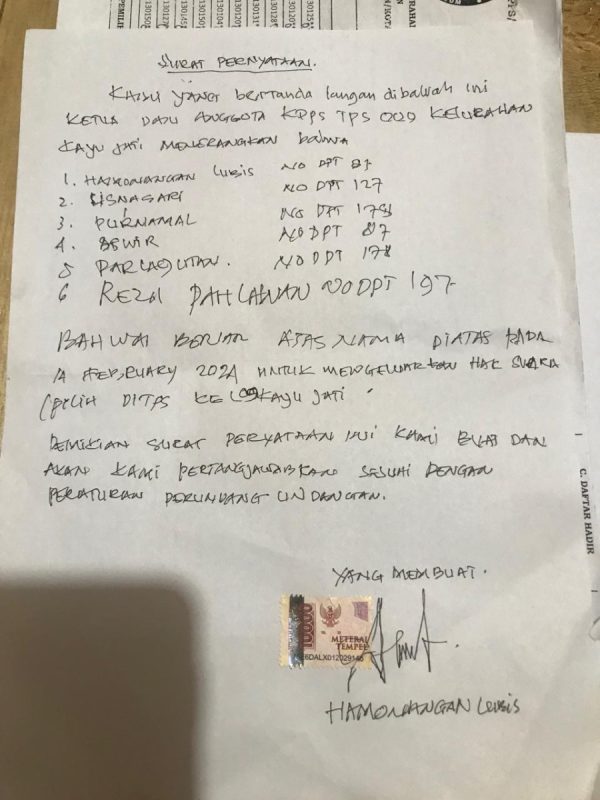 SURAT PERNYATAAN.
KAMI YANG bertanda tangan dibawah ini
KETUA DAN ANGGOTA KPPS TPS 009 KELURAHAN
KAYU JATI MENERANGKAN bahwa
1. HAMONANGAN LUBIS NO DPT 87
2. LISNASARI NO DPT 127
3. PURNAMA NO DPT 178
4. ASWIR NO DPT 87
5 PARLAGUTAN. NO DPT 178
6 REZA PAHLAWAN NO DPT 197
BAHWA BENAR ATAS NAMA DIATAS PADA
14 FEBRUARY 2024 UNTUK MENGELUARKAN HAK SUARA
PILIH DITPS KE 09 KAYU JATI.
DEMIKIAN SURAT PERYATAAN INI KAMI BUAT DAN
AKAN KAMI PERTANGJAWABKAN SESUAI DENGAN
PERATURAN PERUNDANG UNDANGAN.
YANG MEMBUAT.
10000
METERAI
TEMPEL
DALX012029146
HAMONANGAN LUBIS
C. DAFTAR HADIR